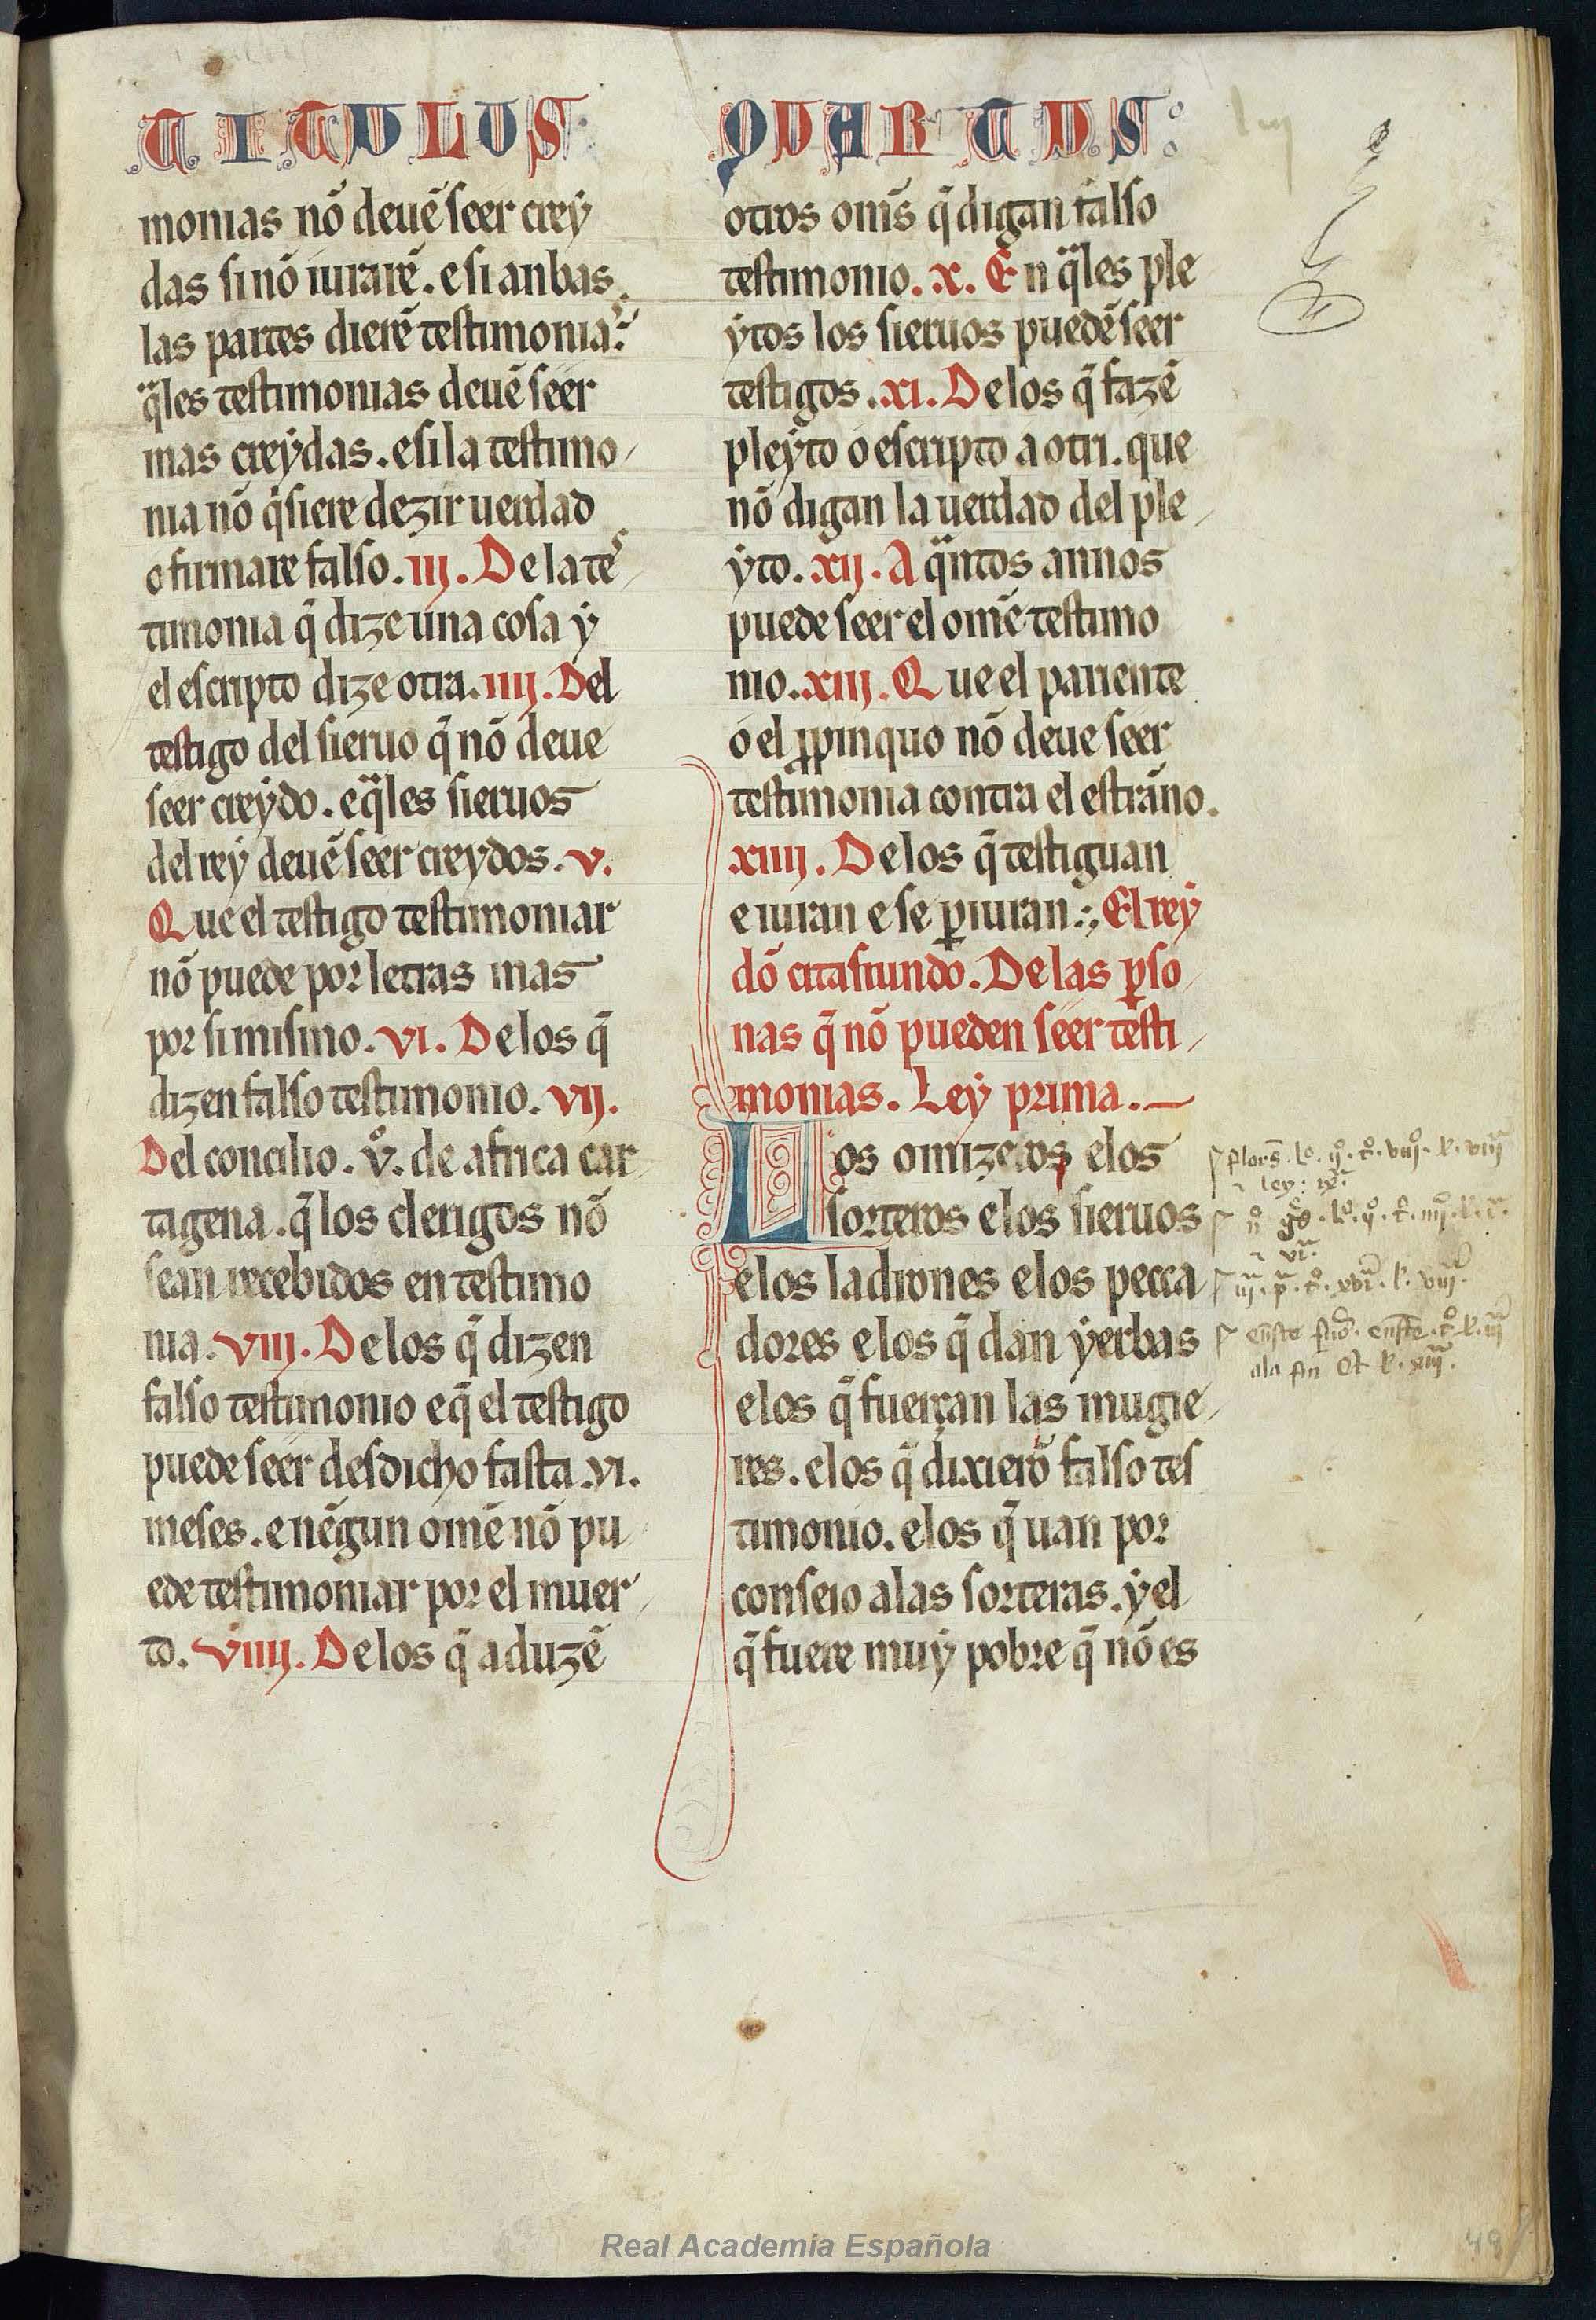 TITULUS
monias nõ deuẽ seer crey
das si nõ iurarẽ. e si anbas
las partes dierẽ testimonias.
q̃les testimonias deuẽ seer
mas creẏdas. e si la testimo
nia nõ q̃siere dezir uerdad
o firmare falso. iij. De la tes
timonia q̃ dize una cosa ẏ
el escripto dize otra. iiij. Del
testigo del sieruo q̃ nõ deue
seer creẏdo. e q̃les sieruos
del reẏ deuẽ seer creydos. v.
Que el testigo testimoniar
nõ puede por letras mas
por si mismo. vi. De los q̃
dizen falso testimonio. vij.
Del concilio. vº. de africa car
tagena. q̃ los clerigos nõ
sean recebidos en testimo
nia. viii. De los q̃ dizen
falso testimonio e q̃ el testigo
puede seer desdicho fasta. vi.
meses. e nẽgun omẽ nõ pu
ede testimoniar por el muer
to. viiij. De los q̃ aduzẽ
QUARTUS
otros om̃s q̃ digan falso
testimonio. x. En q̃les ple
ẏtos los sieruos puedẽ seer
testigos. xi. De los q̃ fazẽ
pleẏto o escripto a otri. que
nõ digan la uerdad del ple
ẏto. xij. A q̃ntos annos
puede seer el omẽ testimo
nio. xiij. Que el pariente
o el ꝓpinquo nõ deue seer
testimonia contra el estrãno.
xiiij. De los q̃ testiguan
e iuran e se ꝑiuran. El reẏ
dõ citasiundo. De las ꝑso
nas q̃ nõ pueden seer testi
monias. Leẏ prima.
Los omizeros e los
sorteros e los sieruos
e los ladrones e los pecca
dores e los q̃ dan ẏerbas
e los q̃ fuerçan las mugie
res. e los q̃ dixierõ falso tes
timonio. e los q̃ uan por
conseio a las sorteras. ẏ el
q̃ fuere muẏ pobre q̃ nõ es
Real Academia Española
49